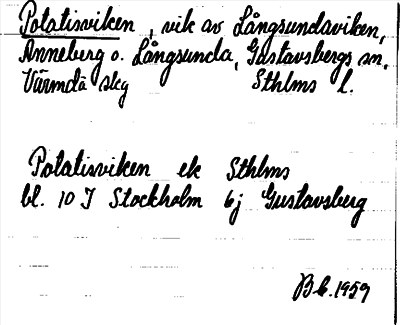 Potatisviken, vik av Långsundaviken,
Anneberg o. Långsunda, Gustavsbergs sn.
Värmdö skg Sthlms l.
Potatisviken ek Sthlms
bl. 10 I Stockholm 6j Gustavsberg
B b. 1959